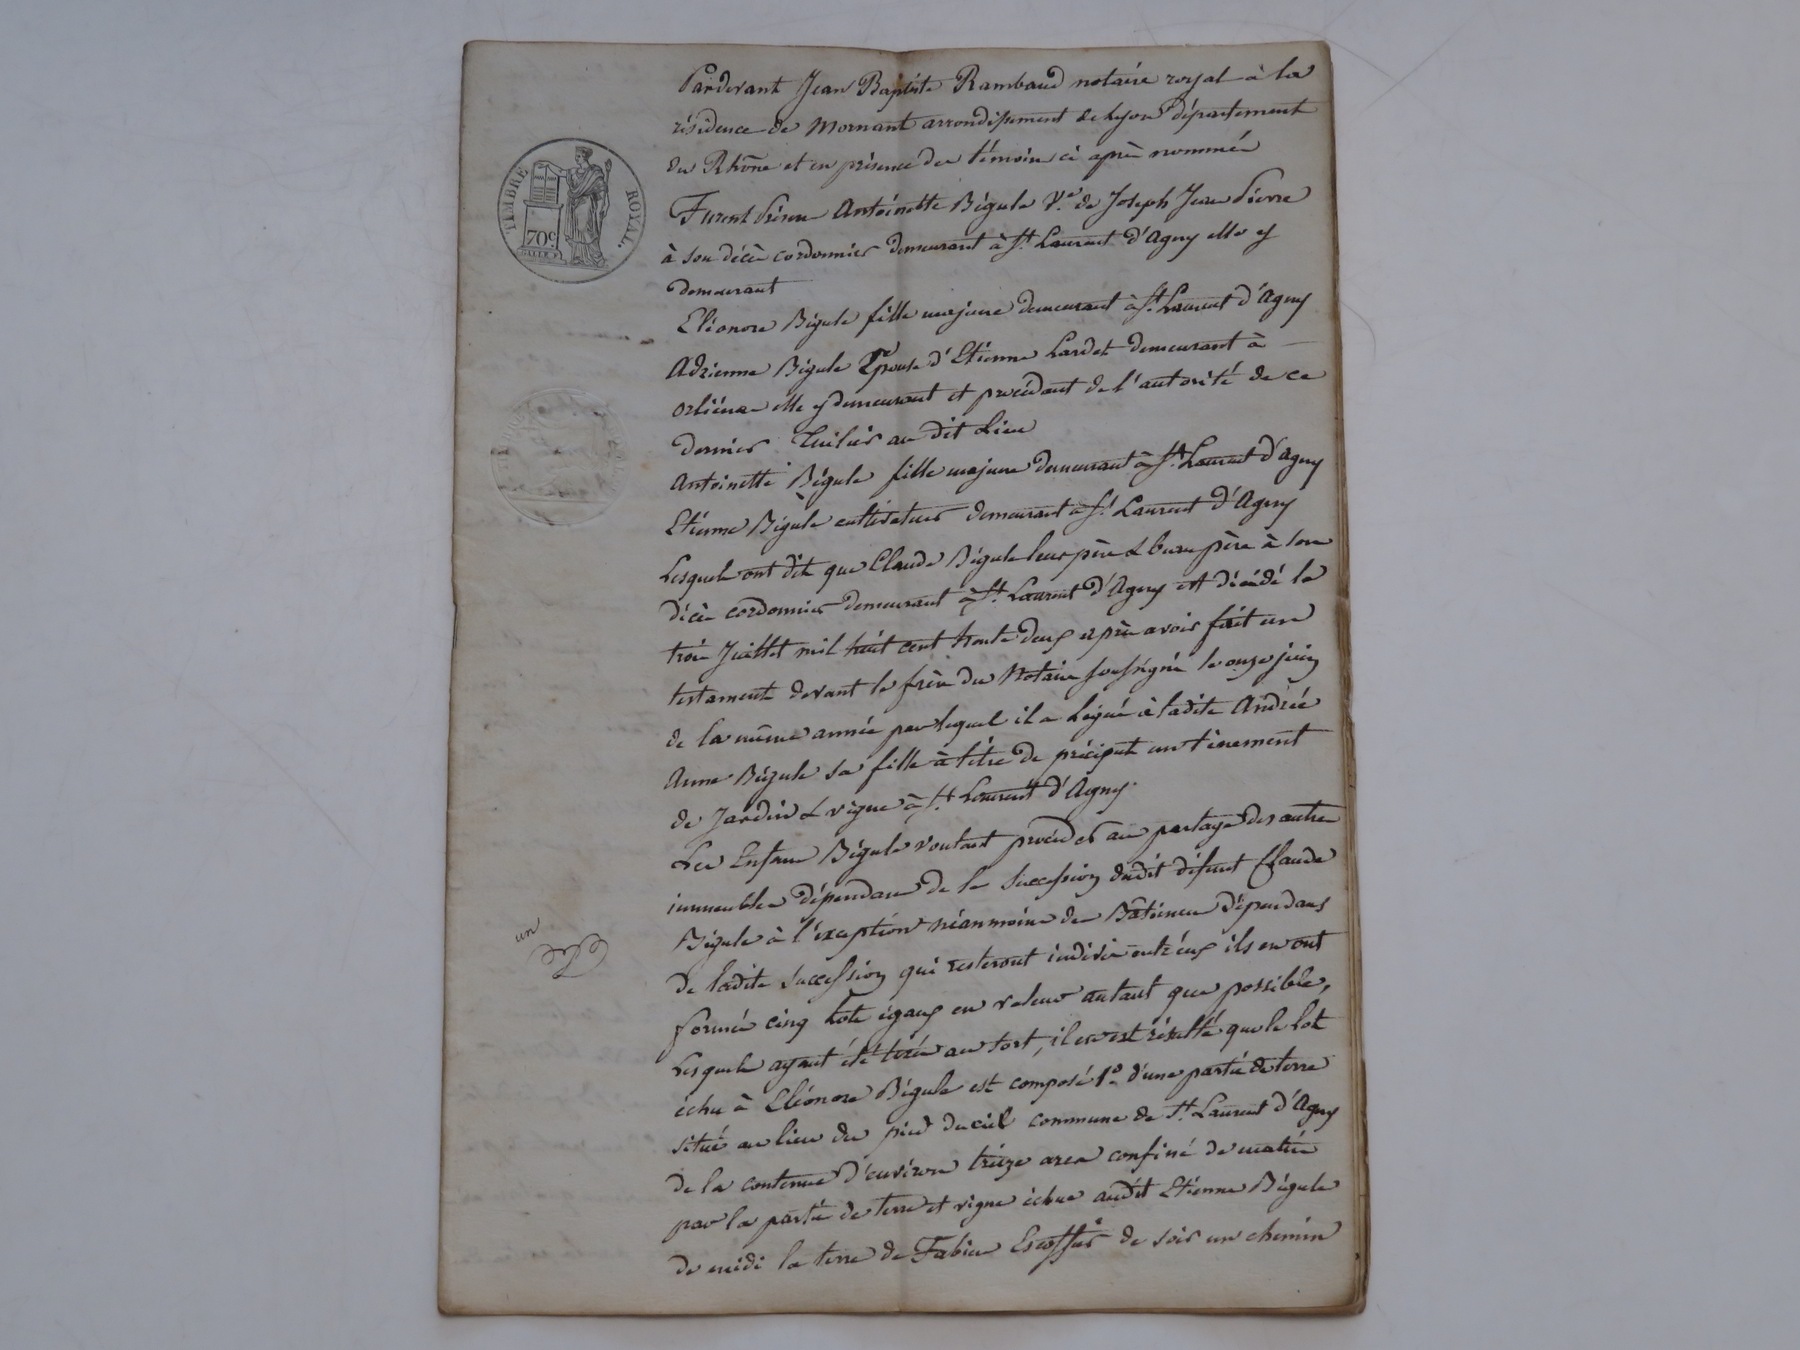 TIMBRE ROYAL.
70c
Pardevant Jean Baptiste Rambaud notaire royal à la
résidence de Mornant arrondissement de Lyon département
du Rhône et en présence des témoins ci après nommés
Furent présens Antoinette Bégule Ve de Joseph Jean Pierre
à son décès cordonnier demeurant à St Laurent d'Agny elle y
demeurant
Eléonore Bégule fille majeure demeurant à St Laurent d'Agny
Adrienne Bégule Epouse d'Etienne Lardet demeurant à
orliénas elle y demeurant et procédant de l'autorité de ce
dernier Tuilier au dit Lieu
Antoinette Bégule fille majeure demeurant à St Laurent d'Agny
Etienne Bégule cultivateur demeurant à St Laurent d'Agny
Lesquels ont dit que Claude Bégule leur père & beau père à son
décès cordonnier demeurant à St Laurent d'Agny est décédé le
trois Juillet mil huit cent trente deux après avoir fait un
testament devant le frère du Notaire soussigné le onze juin
de la même année par lequel il a Légué à ladite Andrée
Anne Bégule sa fille à titre de préciput un tènement
de Jardin & vigne à St Laurent d'Agny.
Les Enfans Bégule voulant procéder au partage des autres
immeubles dépendans de la succession dudit défunt Claude
Bégule à l'exception néanmoins des Bâtimens dépendans
de ladite succession qui resteront indivis entr'eux ils en ont
un
formés cinq Lots égaux en valeur autant que possible,
Lesquels ayant été tirés au sort, il en est résulté que le lot
échu à Eléonore Bégule est composé 1o d'une partie de terre
située au lieu du pied du cul commune de St Laurent d'Agny
de la contenue d'environ treize ares confiné de matin
par la partie de terre et vigne échue audit Etienne Bégule
de midi la terre de Fabien Escoffier de soir un chemin